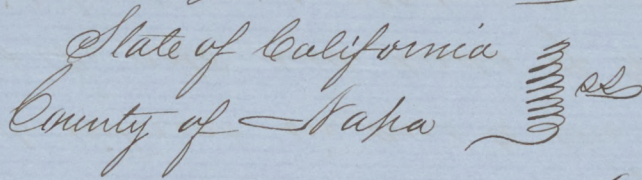 State of California
County of Napa } ss